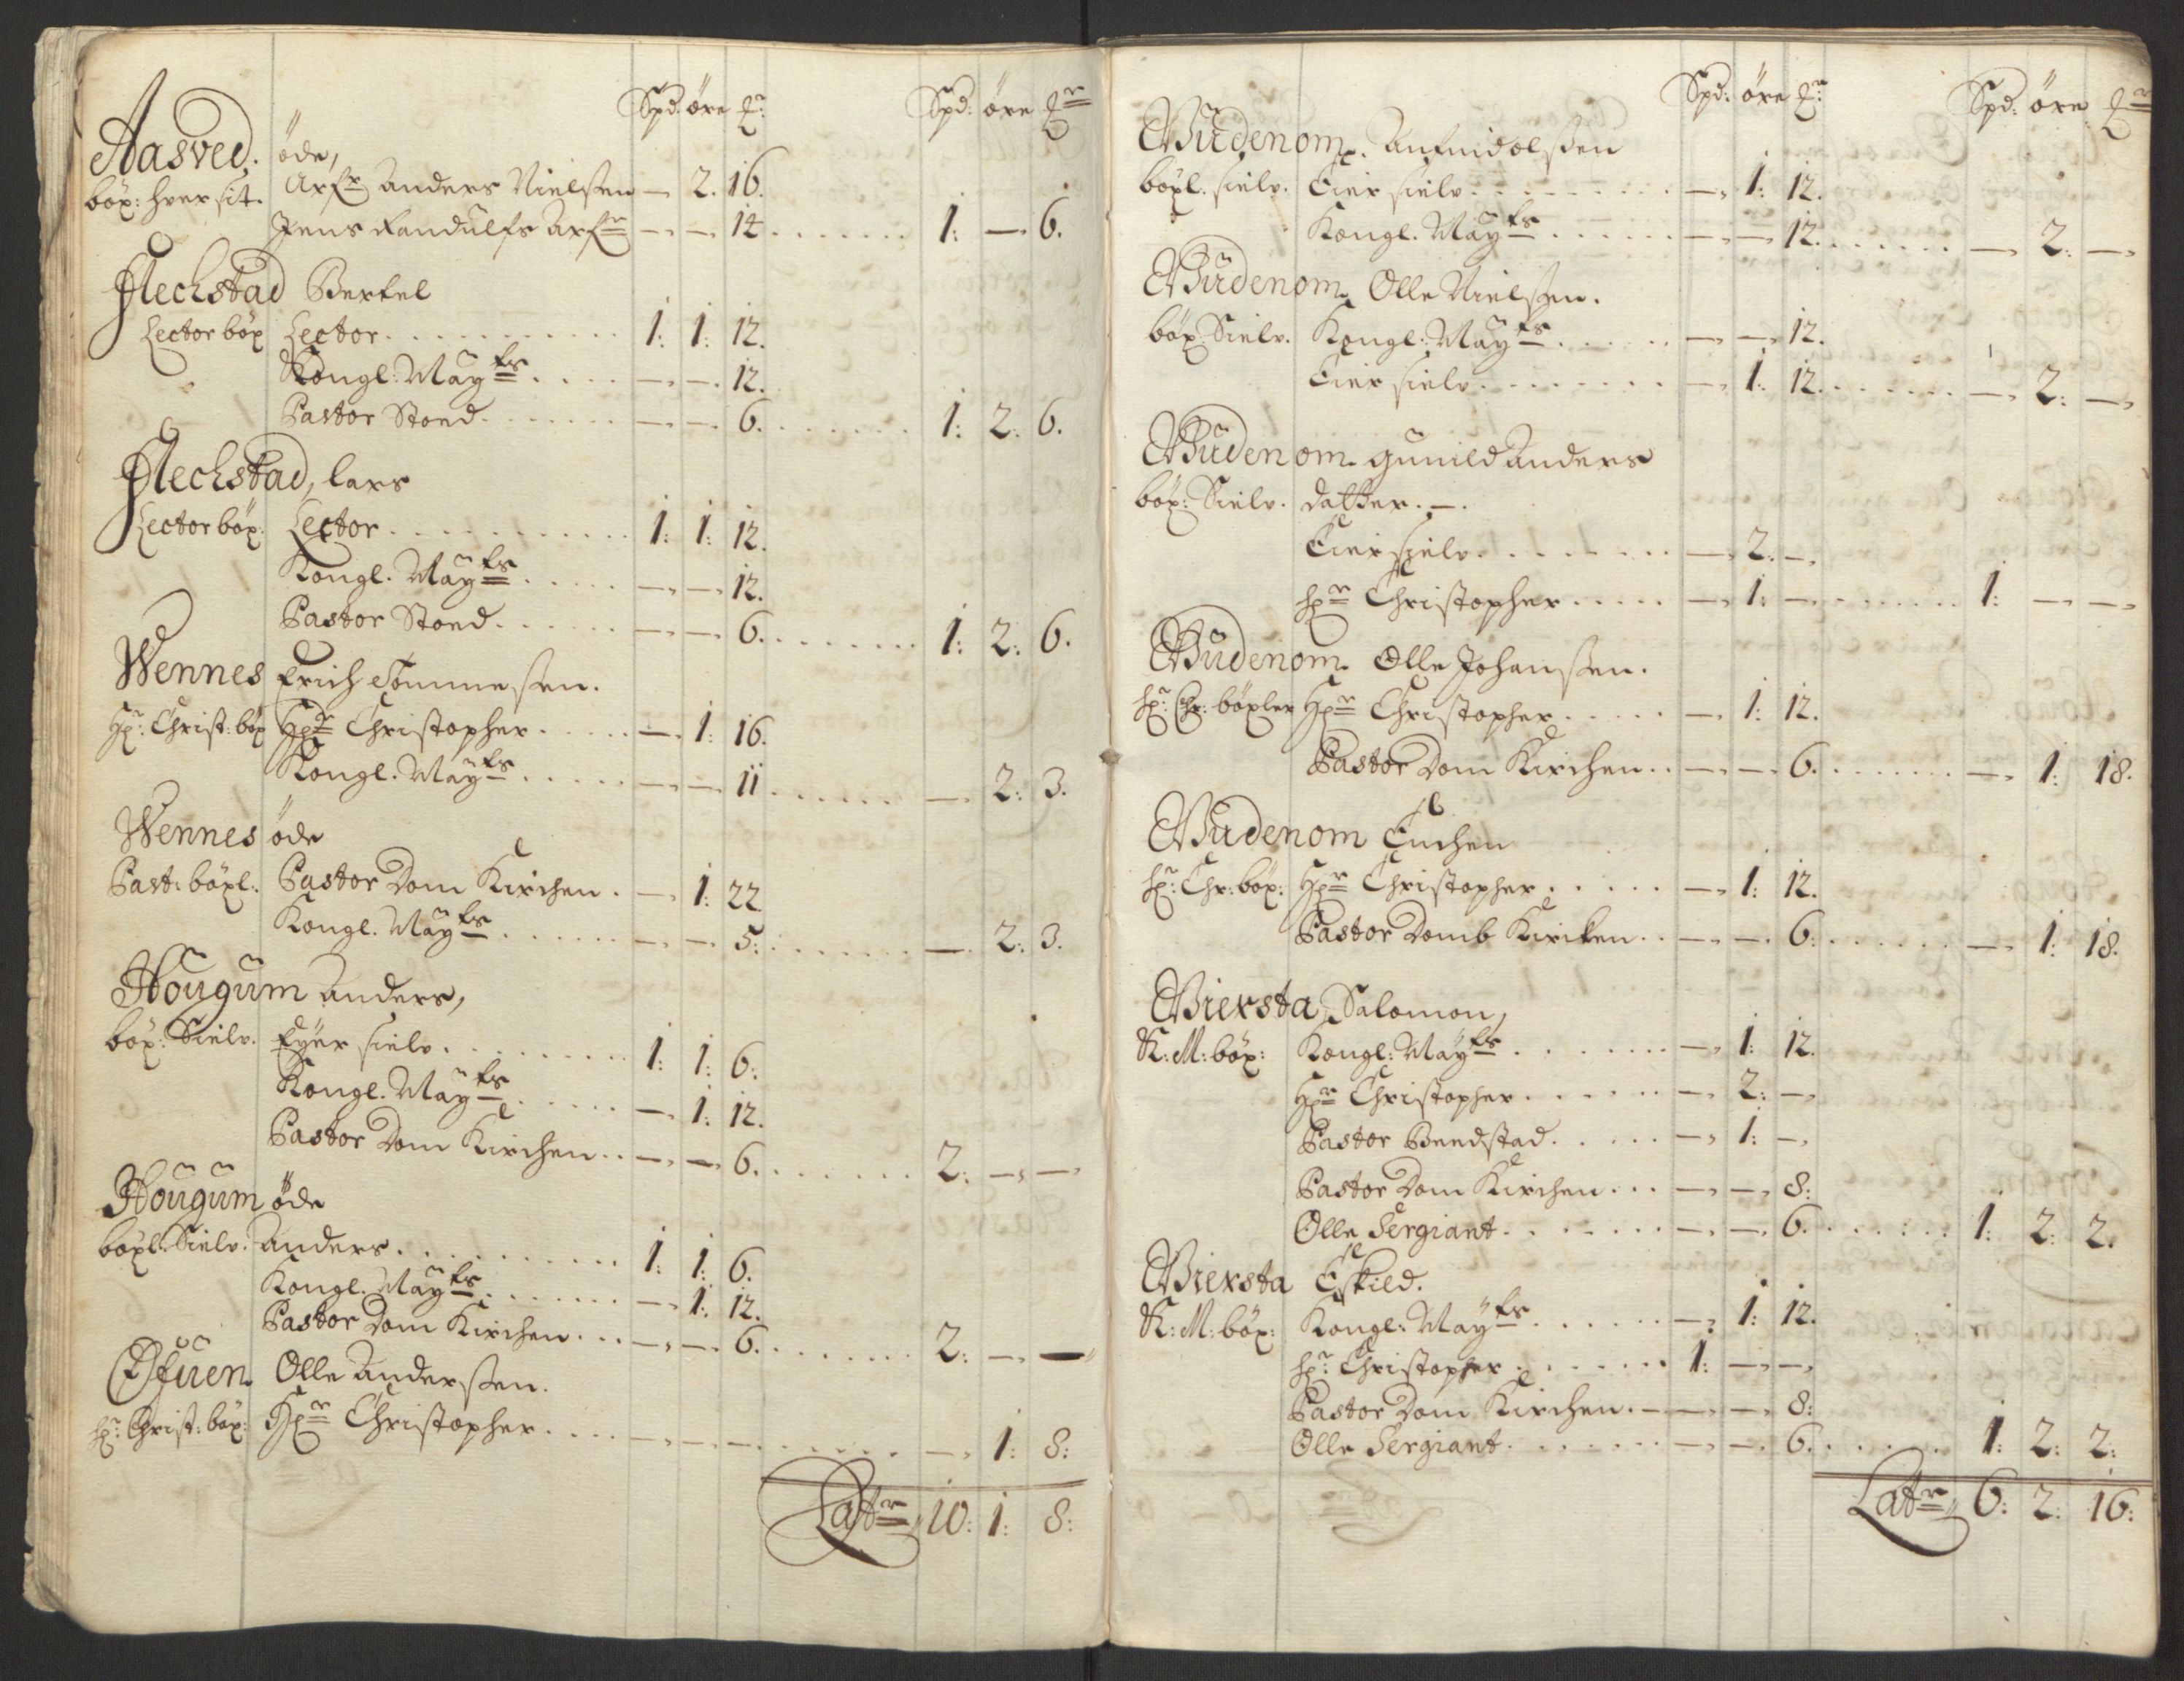 Spd: öre ₤r Spd: öre ₤r
Aasved. öde,
böx: hver sit. Arfr Anders Nielssen — 2. 16.
Jens Randulfs Arfr — — 14 . . . . . . 1: — 6.
Flechstad Bertel
Lector böx Lector . . . . . . . . 1: 1: 12.
Kongl: Mayts . . . . — — 12.
Pastor Stoed . . . . . — — 6. . . . . . . 1: 2: 6.
Flechstad, Lars
Lector böx: Lector . . . . . . . . 1: 1: 12.
Kongl. Mayts . . . . — — 12.
Pastor Stoed . . . . . — — 6. . . . . . . 1: 2: 6.
Wennes Erich Tommessen.
Hr: Christ: böx Hr Christopher . . . . — 1: 16.
Kongl. Mayts . . . . — — 11 . . . . . . — 2: 3.
Wennes öde
Past: böxl: Pastor Dom Kirchen . — 1: 22
Kongl. Mayts . . . . . — — 5: . . . . . . — 2: 3.
Hougum Anders,
böx: Sielv. Eyer sielv . . . . . . . 1: 1: 6:
Kongl. Mayts . . . . — 1: 12.
Pastor Dom Kirchen . . — — 6. . . . . . . 2: — —
Hougum öde
böxl: Sielv. Anders . . . . . . . . 1: 1: 6.
Kongl. Mayts . . . . . — 1: 12.
Pastor Dom Kirchen . . . — — 6. . . . . . . 2: — —
Öfuen. Olle Anderssen.
hr: Christ: böx: Hr Christopher . . . . — — — . . . . . . — 1: 8:
Latr 10: 1: 8:
Spd: öre ₤r: Spd: öre ₤r
Wudenom.
böxl. sielv. Eier sielv . . . . . . . — 1: 12.
Kongl. Mayts . . . . . — — 12. . . . . . . — 2: —
Wudenom. Olle Nielssen.
böx: Sielv. Kongl: Mayts . . . . . — — 12.
Eier sielv . . . . . . . — 1: 12. . . . . . — 2: —
Wudenom. Gunild Anders
böx: Sielv. datter. —.
Eier sielv . . . . . . . — 2: —
hr Christopher . . . . . — 1: — . . . . . . 1: — —
Wudenom. Olle Johanssen.
hr: Chr: böxler Hr Christopher . . . . . — 1: 12.
Pastor Dom Kirchen . . — — 6. . . . . . . — 1: 18.
Wudenom Euchen
hr: Chr: böx: Hr Christopher . . . . . — 1: 12.
Pastor Domb Kircken . . — — 6: . . . . . . — 1: 18.
Wiersta, Salomon,
K: M: böx: Kongl: Mayts . . . . . . — 1: 12.
Hr Christopher . . . . . . — 2: —
Pastor Bundstad . . . . . — 1: —
Pastor Dom Kirchen . . . — — 8:
Olle Sergiant . . . . . . . — — 6. . . . . . 1: 2: 2.
Wiersta Eskild.
K: M: böx: Kongl: Mayts . . . . . . — 1: 12.
hr: Christopher . . . . . . 1: — —
Pastor Dom Kirchen . — — — 8:
Olle Sergiant . . . . . . . — — 6. . . . . . 1: 2: 2:
Latr 6: 2: 16: